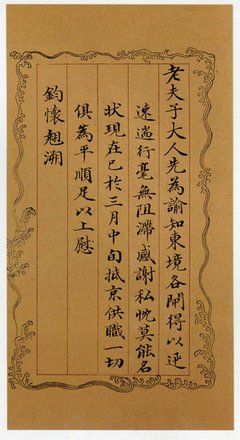 老夫子大人先為諭知東境各閘得以迅
速遄行毫無阻滯感謝私忱莫能名
狀現在已於三月中旬抵京供職一切
俱為平順足以上慰
鈞懷翹溯